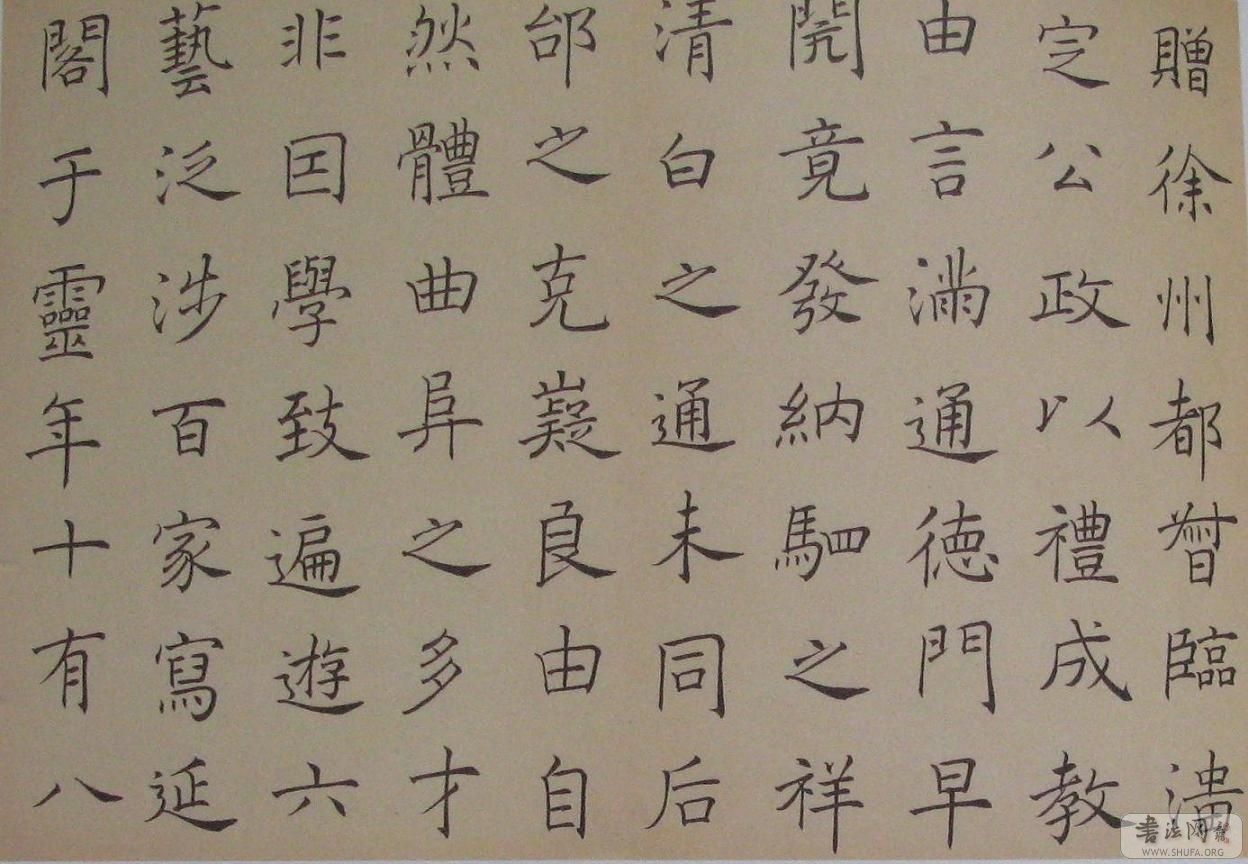 贈徐州都督臨淄
定公政以禮成教
由言滿通德門早
開竟發納駟之祥
清白之通未同后
邰之克嶷良由自
然體曲阜之多才
非因學致遍遊六
藝泛涉百家寫延
閣于靈年十有八
書法网
WWW.SHUFA.ORG